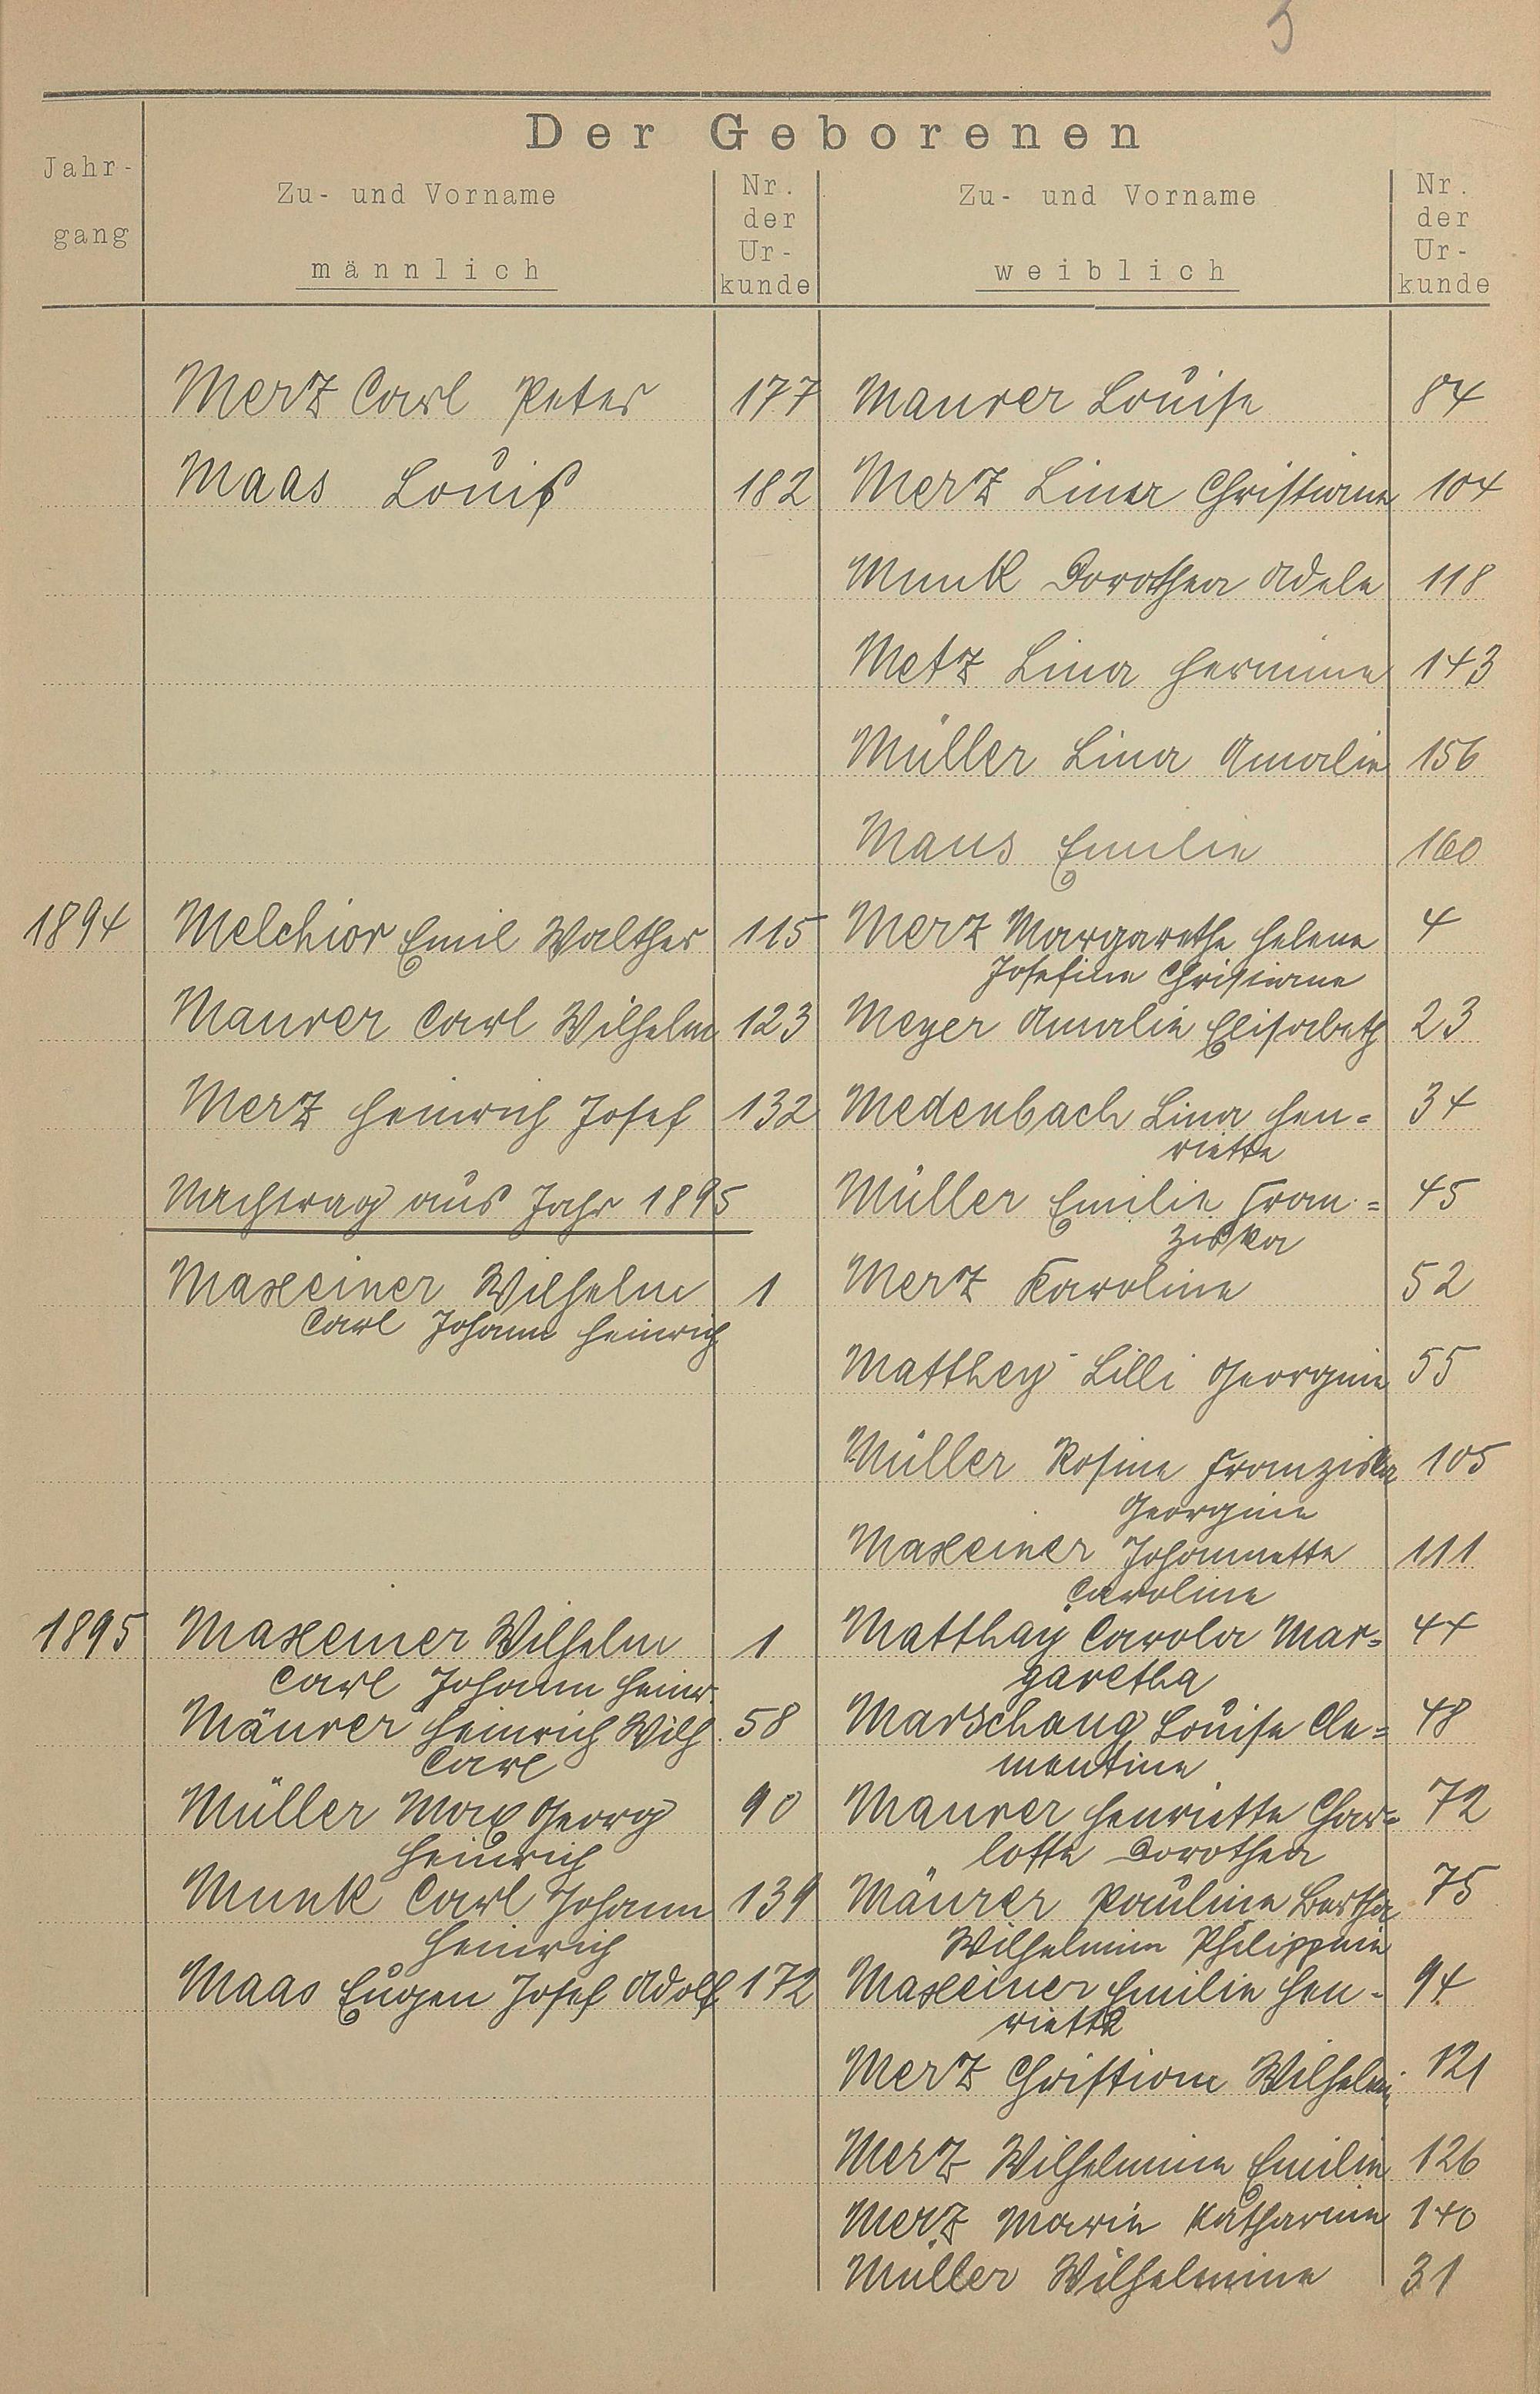 Der Geborenen
Jahr-
gang
Zu- und Vorname
männlich
Nr.
der
Ur-
kunde
Zu- und Vorname
weiblich
Nr.
der
Ur-
kunde
Merz Carl Peter 177 Maurer Louise 84
Maas Louis 182 Merz Lina Christiane 104
Munk Dorothea Adele 118
Metz Lina Hermine 143
Müller Lina Amalie 156
Maus Emilie 160
1894 Melchior Emil Walther 115 Merz Margarethe Helene 4
Josefine Christiane
Maurer Carl Wilhelm 123 Meyer Amalie Elisabeth 23
Merz Heinrich Josef 132 Medenbach Lina Hen= 34
riette
Nachtrag aus Jahr 1895 Müller Emilie Fran= 45
ziska
Maxeiner Wilhelm 1 Merz Karoline 52
Carl Johann Heinrich
Matthey Lilli Georgine 55
Müller Rosine Franziska 105
Georgine
Maxeiner Johannette 111
Caroline
1895 Maxeiner Wilhelm 1 Matthay Carola Mar= 44
Carl Johann Heinr. garetha
Mäurer Heinrich Wilh. 58 Marschang Louise Cle= 48
Carl mentine
Müller Max Georg 90 Maurer Henriette Char= 72
Heinrich lotte Dorothea
Munk Carl Johann 139 Mäurer Pauline Bertha 75
Heinrich Wilhelmine Philippine
Maas Eugen Josef Adolf 172 Maxeiner Emilie Hen- 94
riette
Merz Christiane Wilhelmi 121
Merz Wilhelmine Emilie 126
Merz Marie Katharine 140
Müller Wilhelmine 31